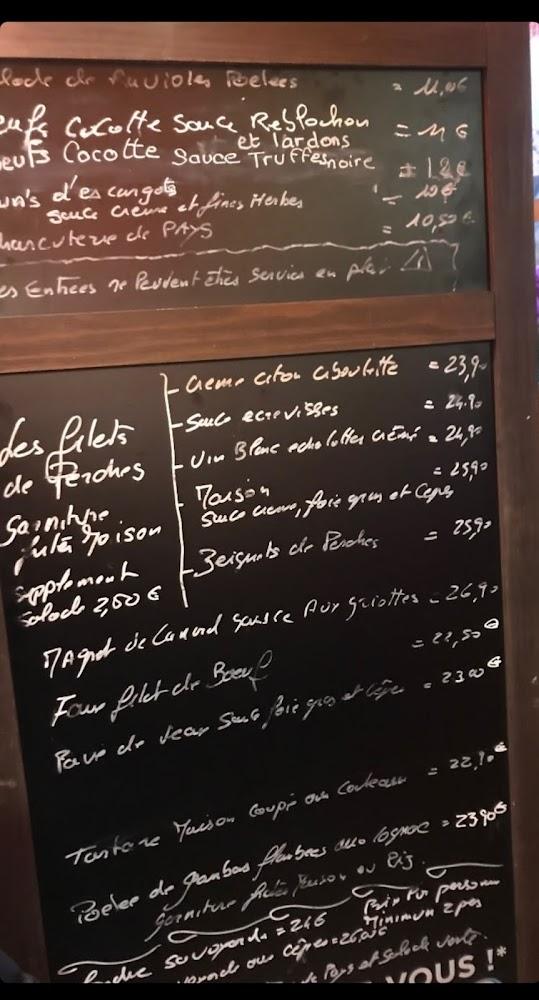 lade de Ravioles Poelees = 11,00€
eufs Cocotte Sauce Reblochon et lardons = 11 €
oeufs Cocotte Sauce Truffes noire = 12€
un's d'escargots = 10€
sauce crème et fines Herbes
harcuterie de PAYS = 10,50€
es Entrées ne Peuvent êtres Servies en plat
Les filets de Perches
Garniture
frites Maison
Supplement
Salade 2,50€
Creme citon ciboulette = 23,90
Sauce ecrevisses = 24.90
Vin Blanc echalottes crémé = 24,90
Maison = 25,90
Sauce creme, foie gras et Cepes
Beignets de Perches = 25,90
Magret de Canard sauce Aux griottes = 26,90
Faux filet de Boeuf = 22,50€
Pavé de veau Sauce foie gras et cèpes = 23 00€
Tartare Maison coupé au Couteau = 22,90€
Poelee de gambas flambees au cognac = 23,90€
garniture frites Maison ou Riz.
Prix Par personne
Minimum 2 pers
ndue savoyarde = 24€
aux cèpes = 26,00€
de Pays et Salade verte.
VOUS !*